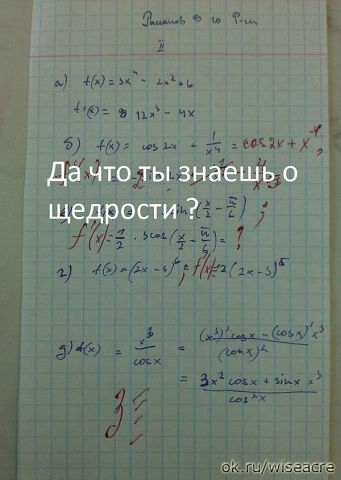 Романов Ф 10 Ф-м
II
а) f(x) = 3x⁴ - 2x² + 6
f'(x) = 12x³ - 4x
б) f(x) = cos2x + 1/x⁴ = cos2x + x⁻⁴;
Да что ты знаешь о
щедрости ?
(x/2 - π/6) ;
f'(x) = 1/2 · 3cos(x/2 - π/6) = ?
г) f(x) = (2x - 3)⁶ = ; f'(x) = 12(2x - 3)⁵
д) f(x) = x³/cosx = ((x³)' cosx - (cosx)' x³)/(cosx)²
= (3x² cosx + sinx x³)/cos²x
3
ok.ru/wiseacre